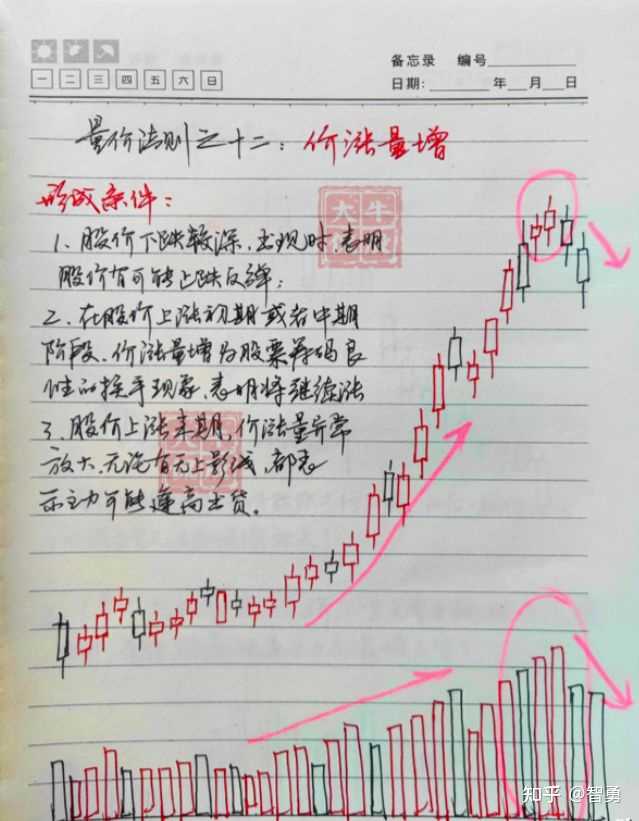 备忘录 编号
一 二 三 四 五 六 日
日期: 年 月 日
量价法则之十二：价涨量增
形成条件：
1、股价下跌较深，出现时，表明
股价有可能止跌反弹；
2、在股价上涨初期或者中期
阶段，价涨量增为股票筹码良
性的换手现象，表明将继续涨
3、股价上涨末期，价涨量异常
放大，无论有无上影线，都表
示主力可能逢高出货。
大牛
大牛
知乎 @智勇